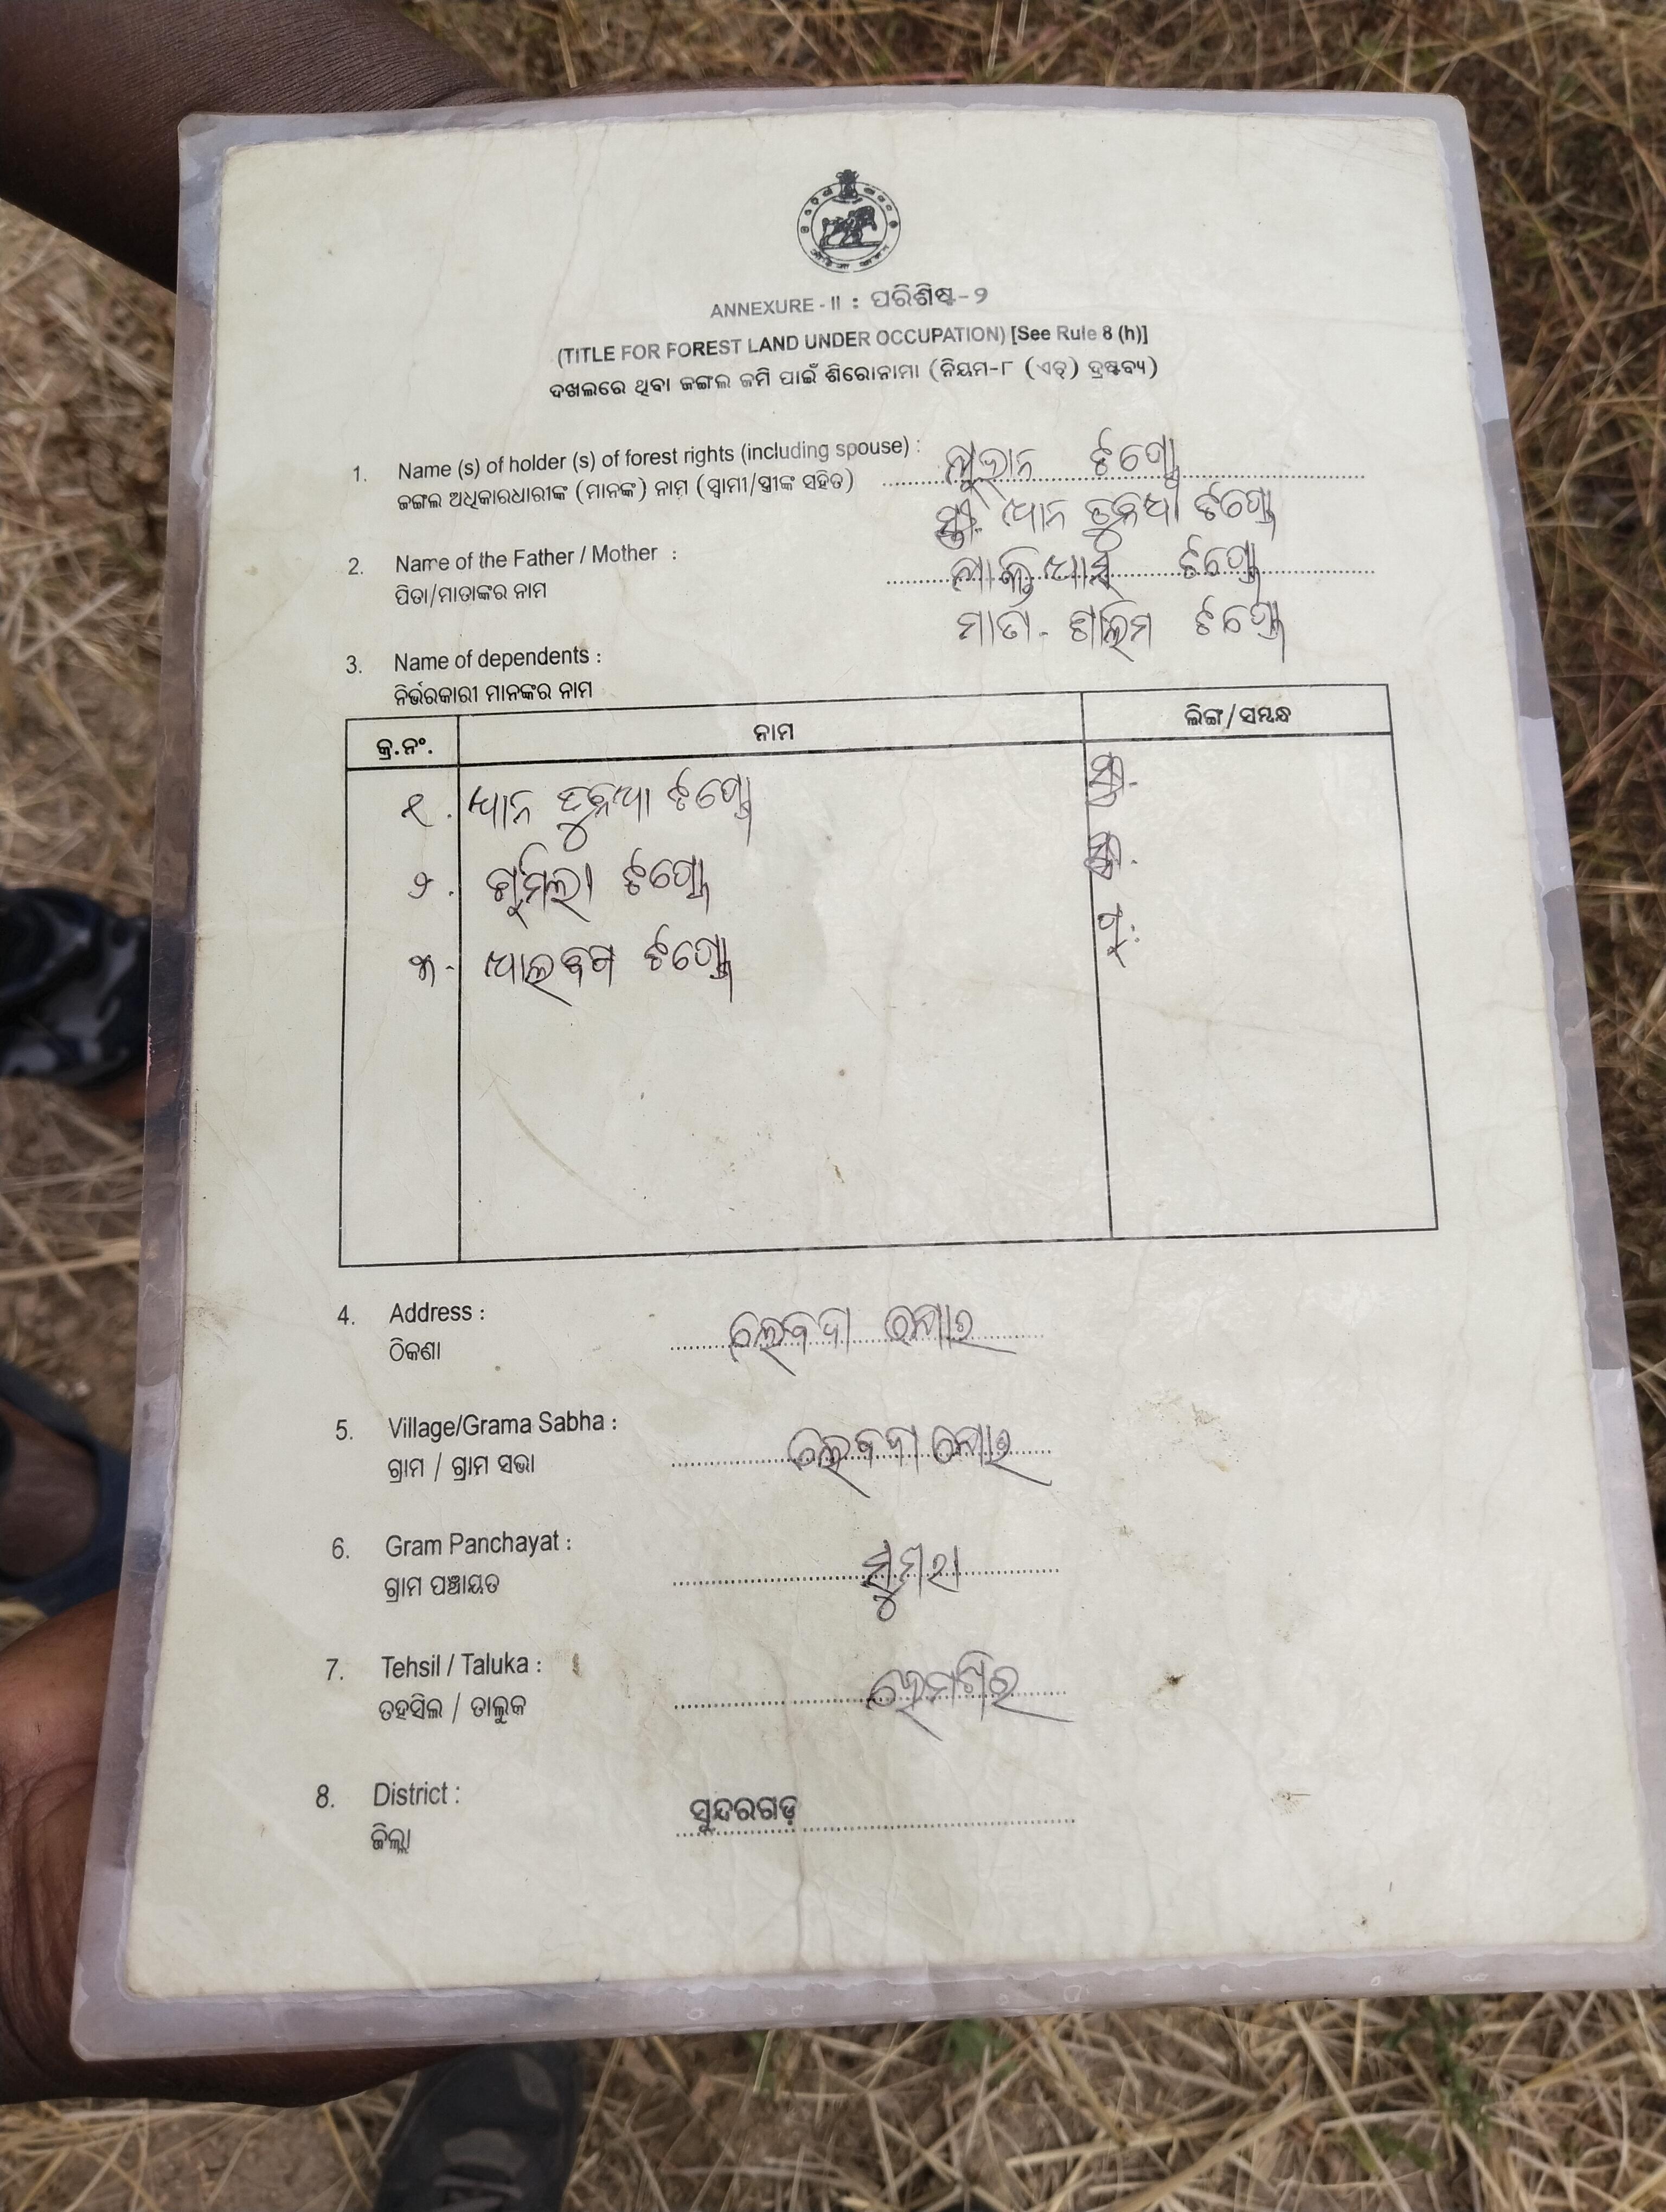 ANNEXURE - II : ପରିଶିଷ୍ଟ-୨
(TITLE FOR FOREST LAND UNDER OCCUPATION) [See Rule 8 (h)]
ଦଖଲରେ ଥିବା ଜଙ୍ଗଲ ଜମି ପାଇଁ ଶିରୋନାମା (ନିୟମ-୮ (ଏଚ୍) ଦ୍ରଷ୍ଟବ୍ୟ)
1. Name (s) of holder (s) of forest rights (including spouse) : ଟପ୍ପୋ
ଜଙ୍ଗଲ ଅଧିକାରଧାରୀଙ୍କ (ମାନଙ୍କ) ନାମ (ସ୍ୱାମୀ/ସ୍ତ୍ରୀଙ୍କ ସହିତ)
ସ୍ତ୍ରୀ. ଧାନ ଟପ୍ପୋ
2. Name of the Father / Mother : ଟପ୍ପୋ
ପିତା/ମାତାଙ୍କର ନାମ
ମାତା - ଟପ୍ପୋ
3. Name of dependents :
ନିର୍ଭରକାରୀ ମାନଙ୍କର ନାମ
କ୍ର.ନଂ. ନାମ ଲିଙ୍ଗ/ସମ୍ବନ୍ଧ
୧. ଧାନ ଟପ୍ପୋ ସ୍ତ୍ରୀ.
୨. ଟପ୍ପୋ ସ୍ତ୍ରୀ.
୩- ଟପ୍ପୋ ପୁ:
4. Address :
ଠିକଣା
5. Village/Grama Sabha :
ଗ୍ରାମ / ଗ୍ରାମ ସଭା
6. Gram Panchayat : ସୁମରା
ଗ୍ରାମ ପଞ୍ଚାୟତ
7. Tehsil / Taluka : ହେମଗିର
ତହସିଲ / ତାଲୁକ
8. District : ସୁନ୍ଦରଗଡ଼
ଜିଲ୍ଲା